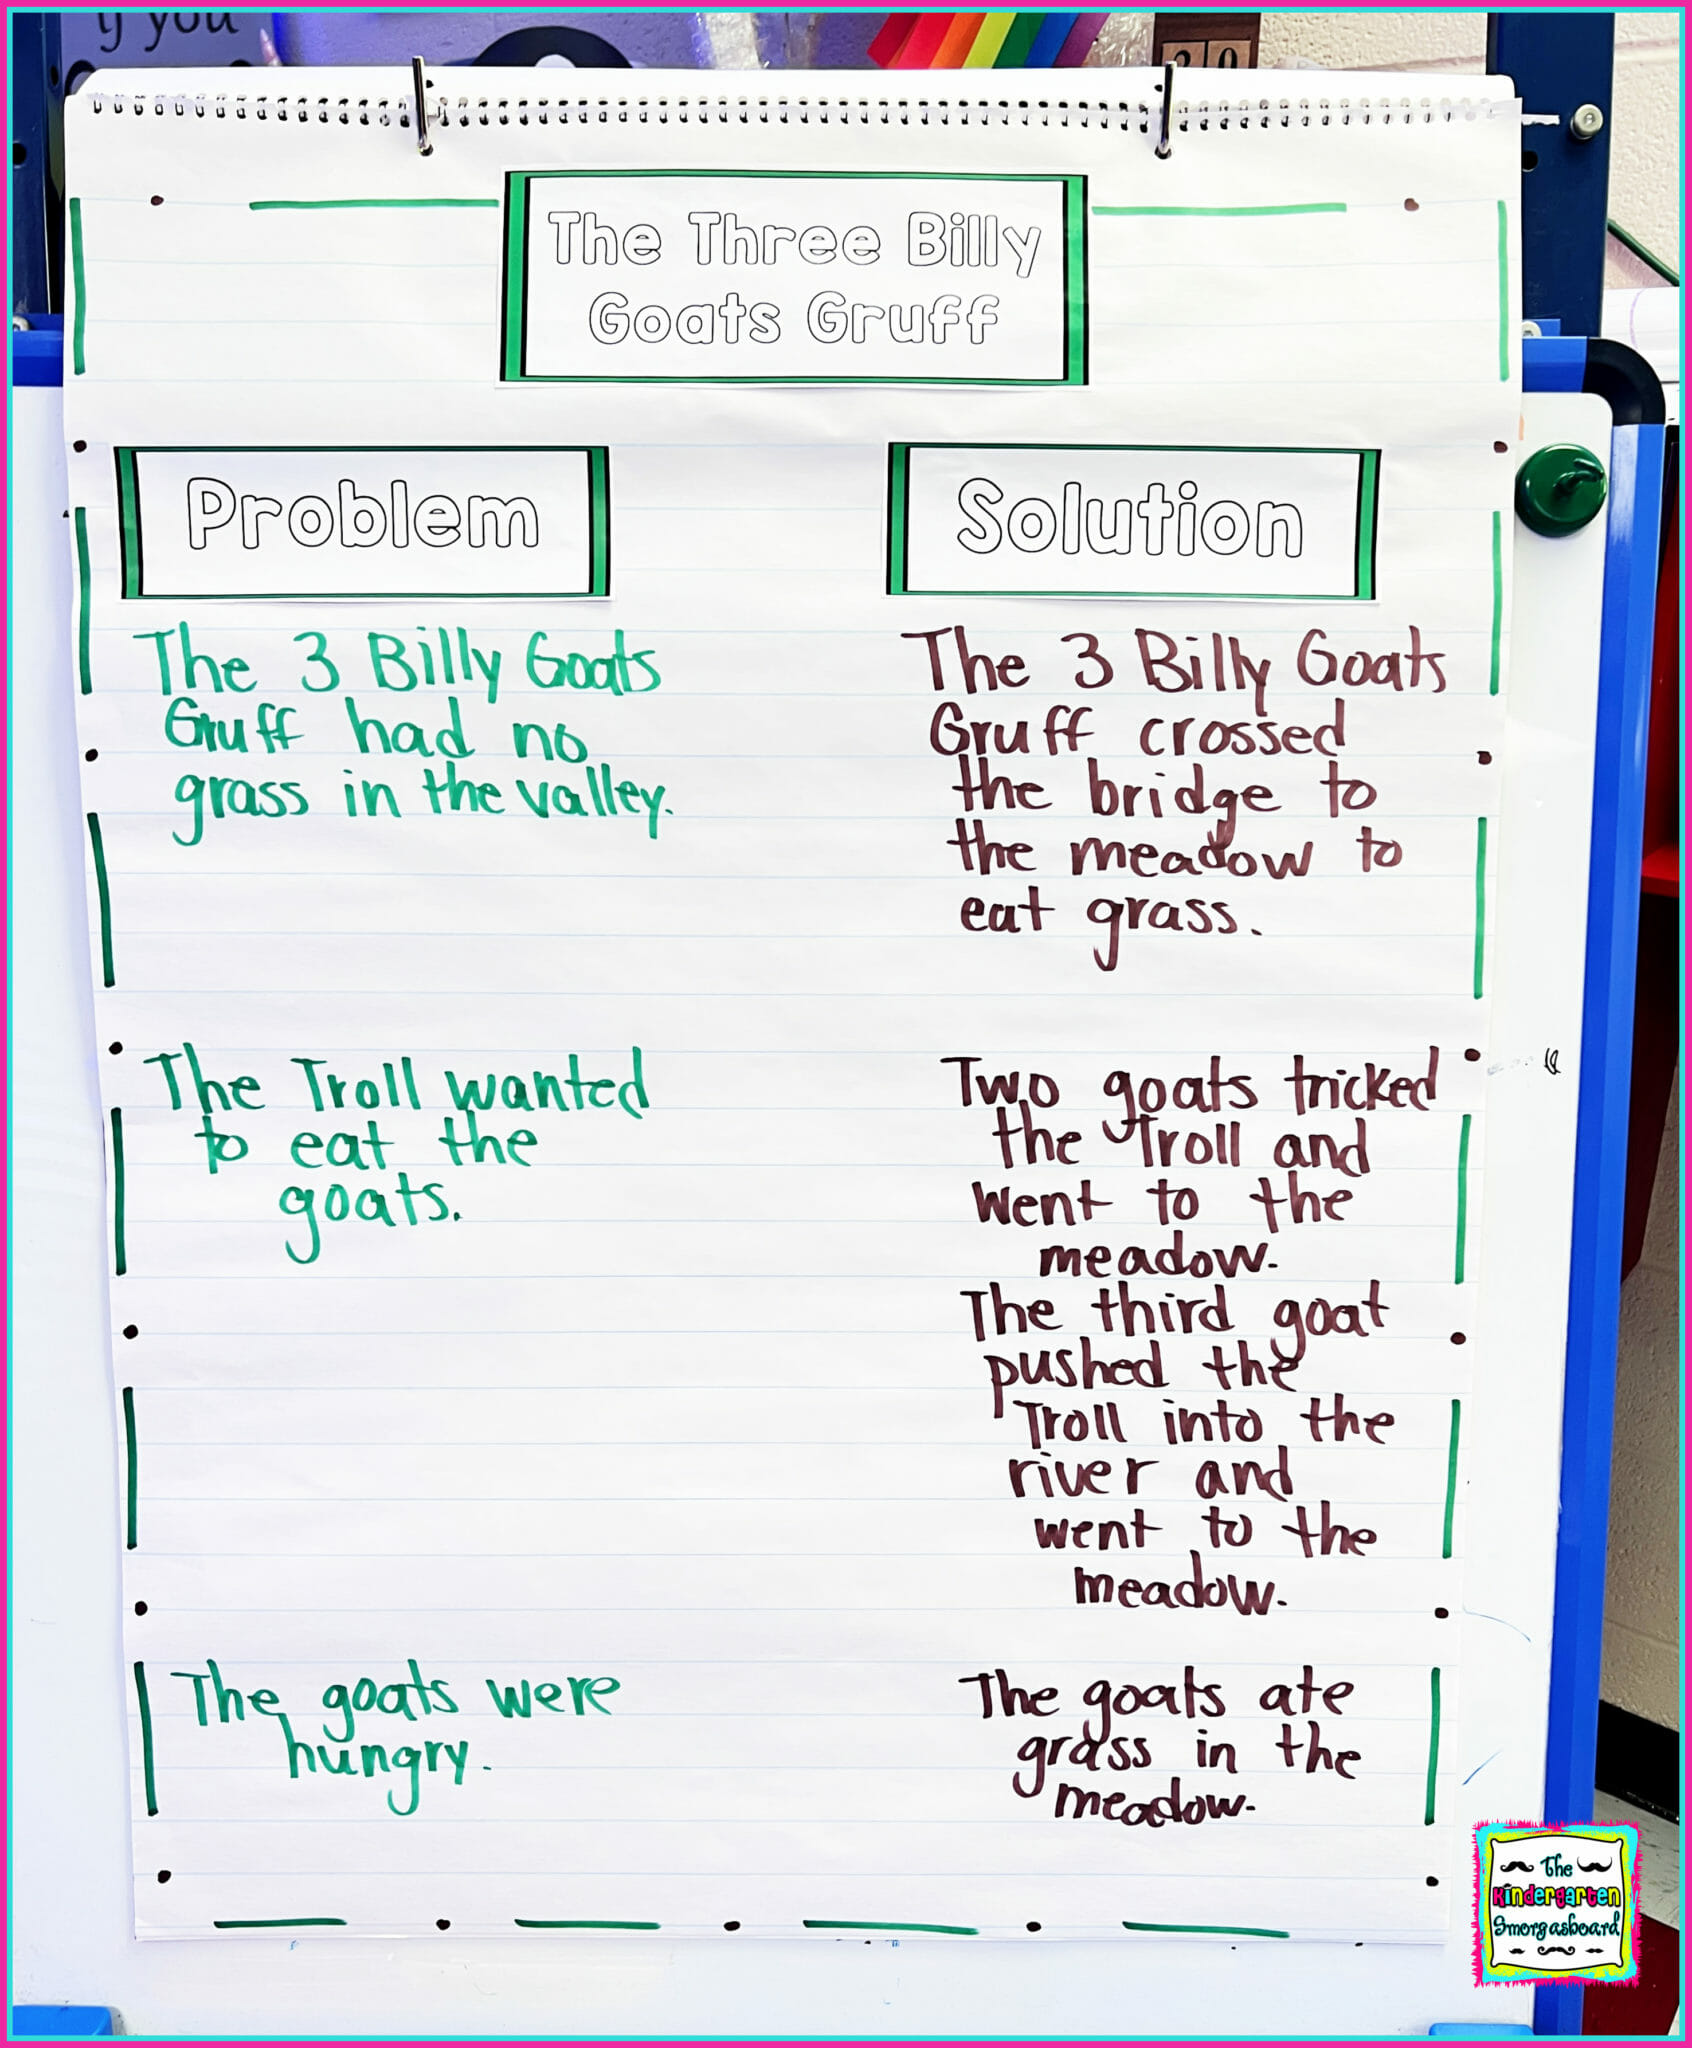 if you
20
The Three Billy
Goats Gruff
Problem
The 3 Billy Goats
Gruff had no
grass in the valley.
The Troll wanted
to eat the
goats.
The goats were
hungry.
Solution
The 3 Billy Goats
Gruff crossed
the bridge to
the meadow to
eat grass.
Two goats tricked
the Troll and
went to the
meadow.
The third goat
pushed the
Troll into the
river and
went to the
meadow.
The goats ate
grass in the
meadow.
The
Kindergarten
Smorgasboard